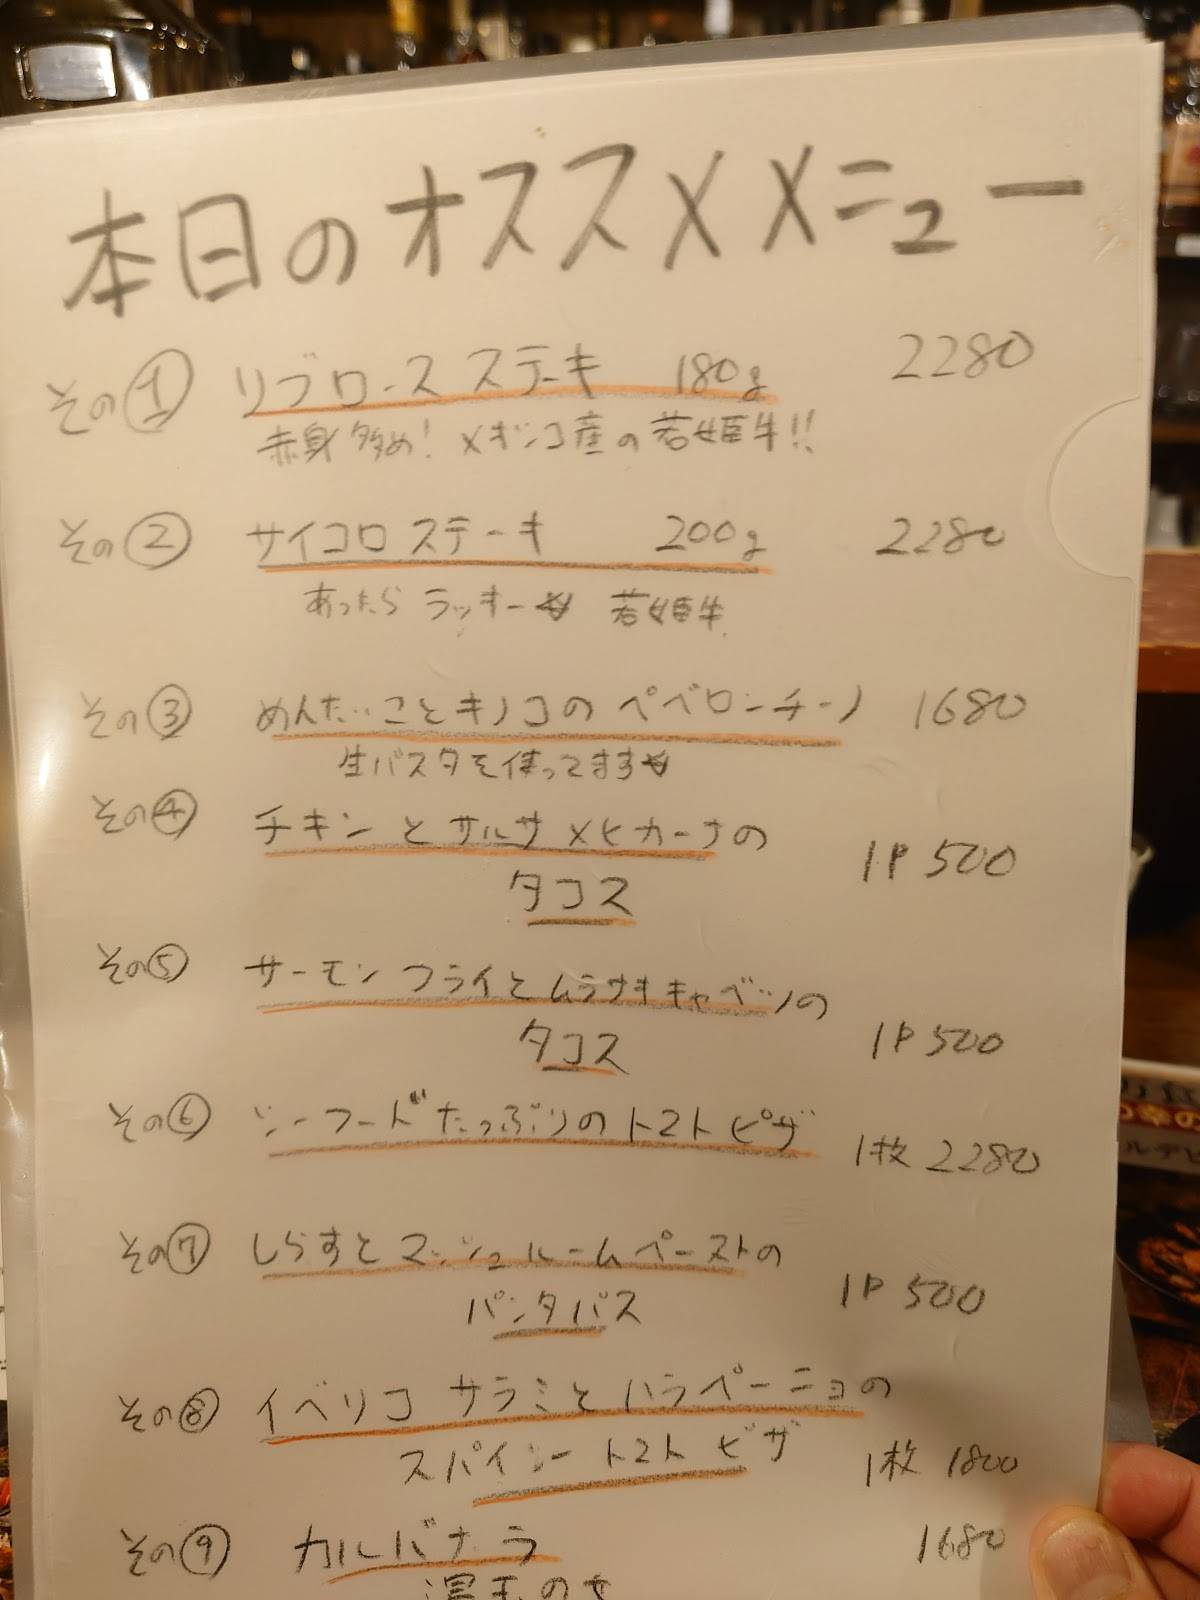 本日のオススメメニュー
その① リブロースステーキ 180g 2280
赤身多め! メキシコ産の若姫牛!!
その② サイコロステーキ 200g 2280
あったらラッキー☆ 若姫牛
その③ めんたいことキノコのペペロンチーノ 1680
生パスタを使ってます☆
その④ チキンとサルサメヒカーナの
タコス 1P 500
その⑤ サーモンフライとムラサキキャベツの
タコス 1P 500
その⑥ シーフードたっぷりのトマトピザ 1枚 2280
その⑦ しらすとマッシュルームペーストの
パンタパス 1P 500
その⑧ イベリコサラミとハラペーニョの
スパイシートマトピザ 1枚 1800
その⑨ カルバナーラ 1680